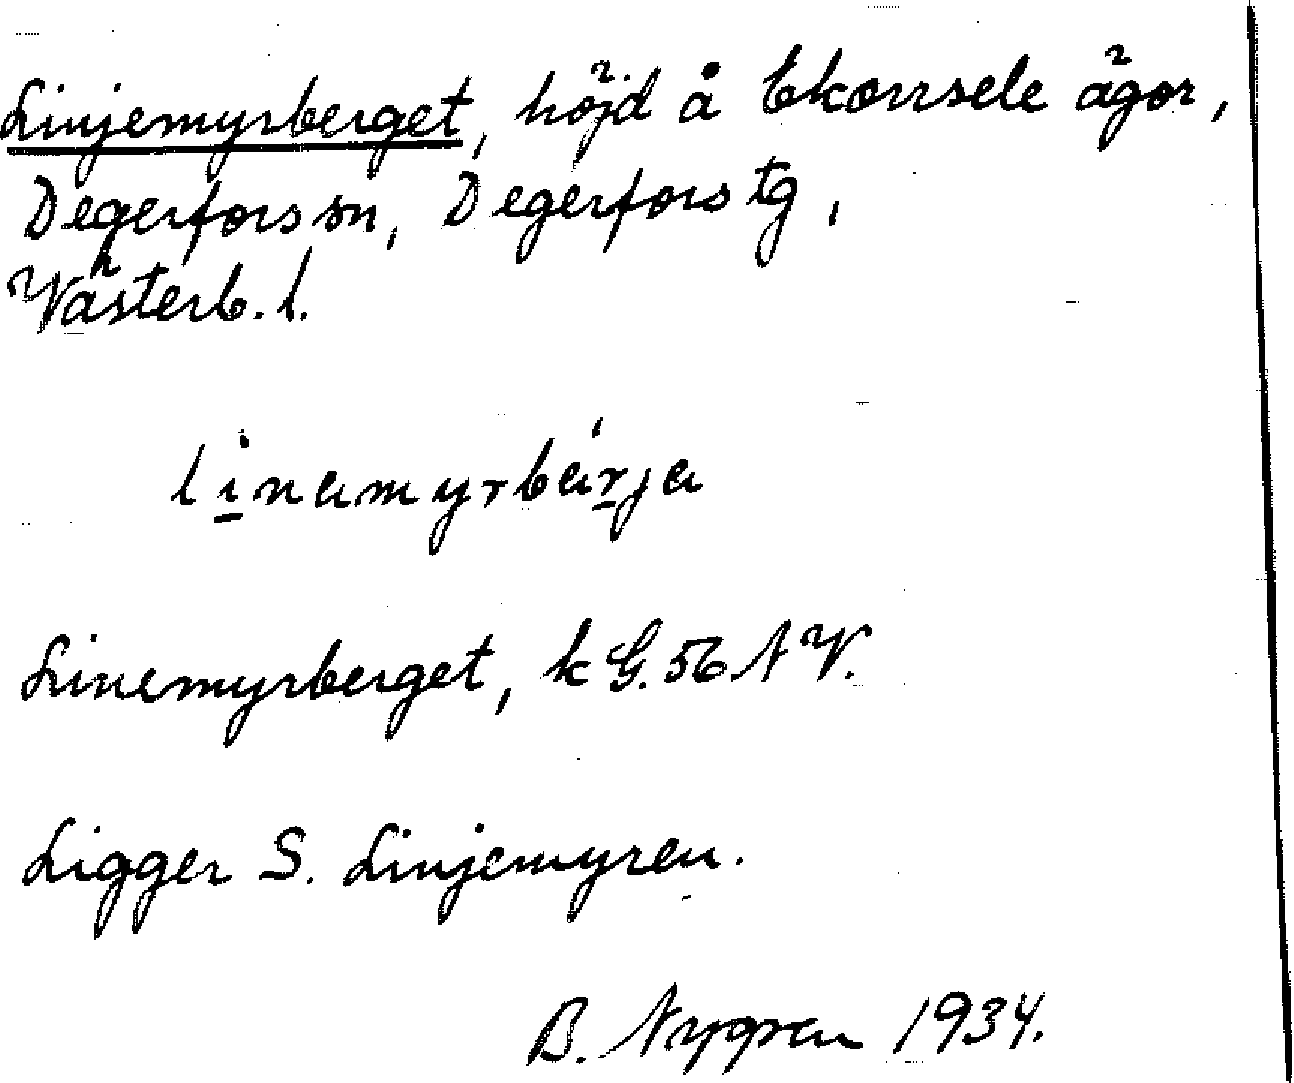 Linjemyrberget, höjd å Ekorrsele ägor,
Degerfors sn, Degerfors tg,
Västerb. l.
li̱namyrbár̠ja
Linemyrberget, k G. 56 N V.
Ligger S. Linjemyren.
B. Nygren 1934.